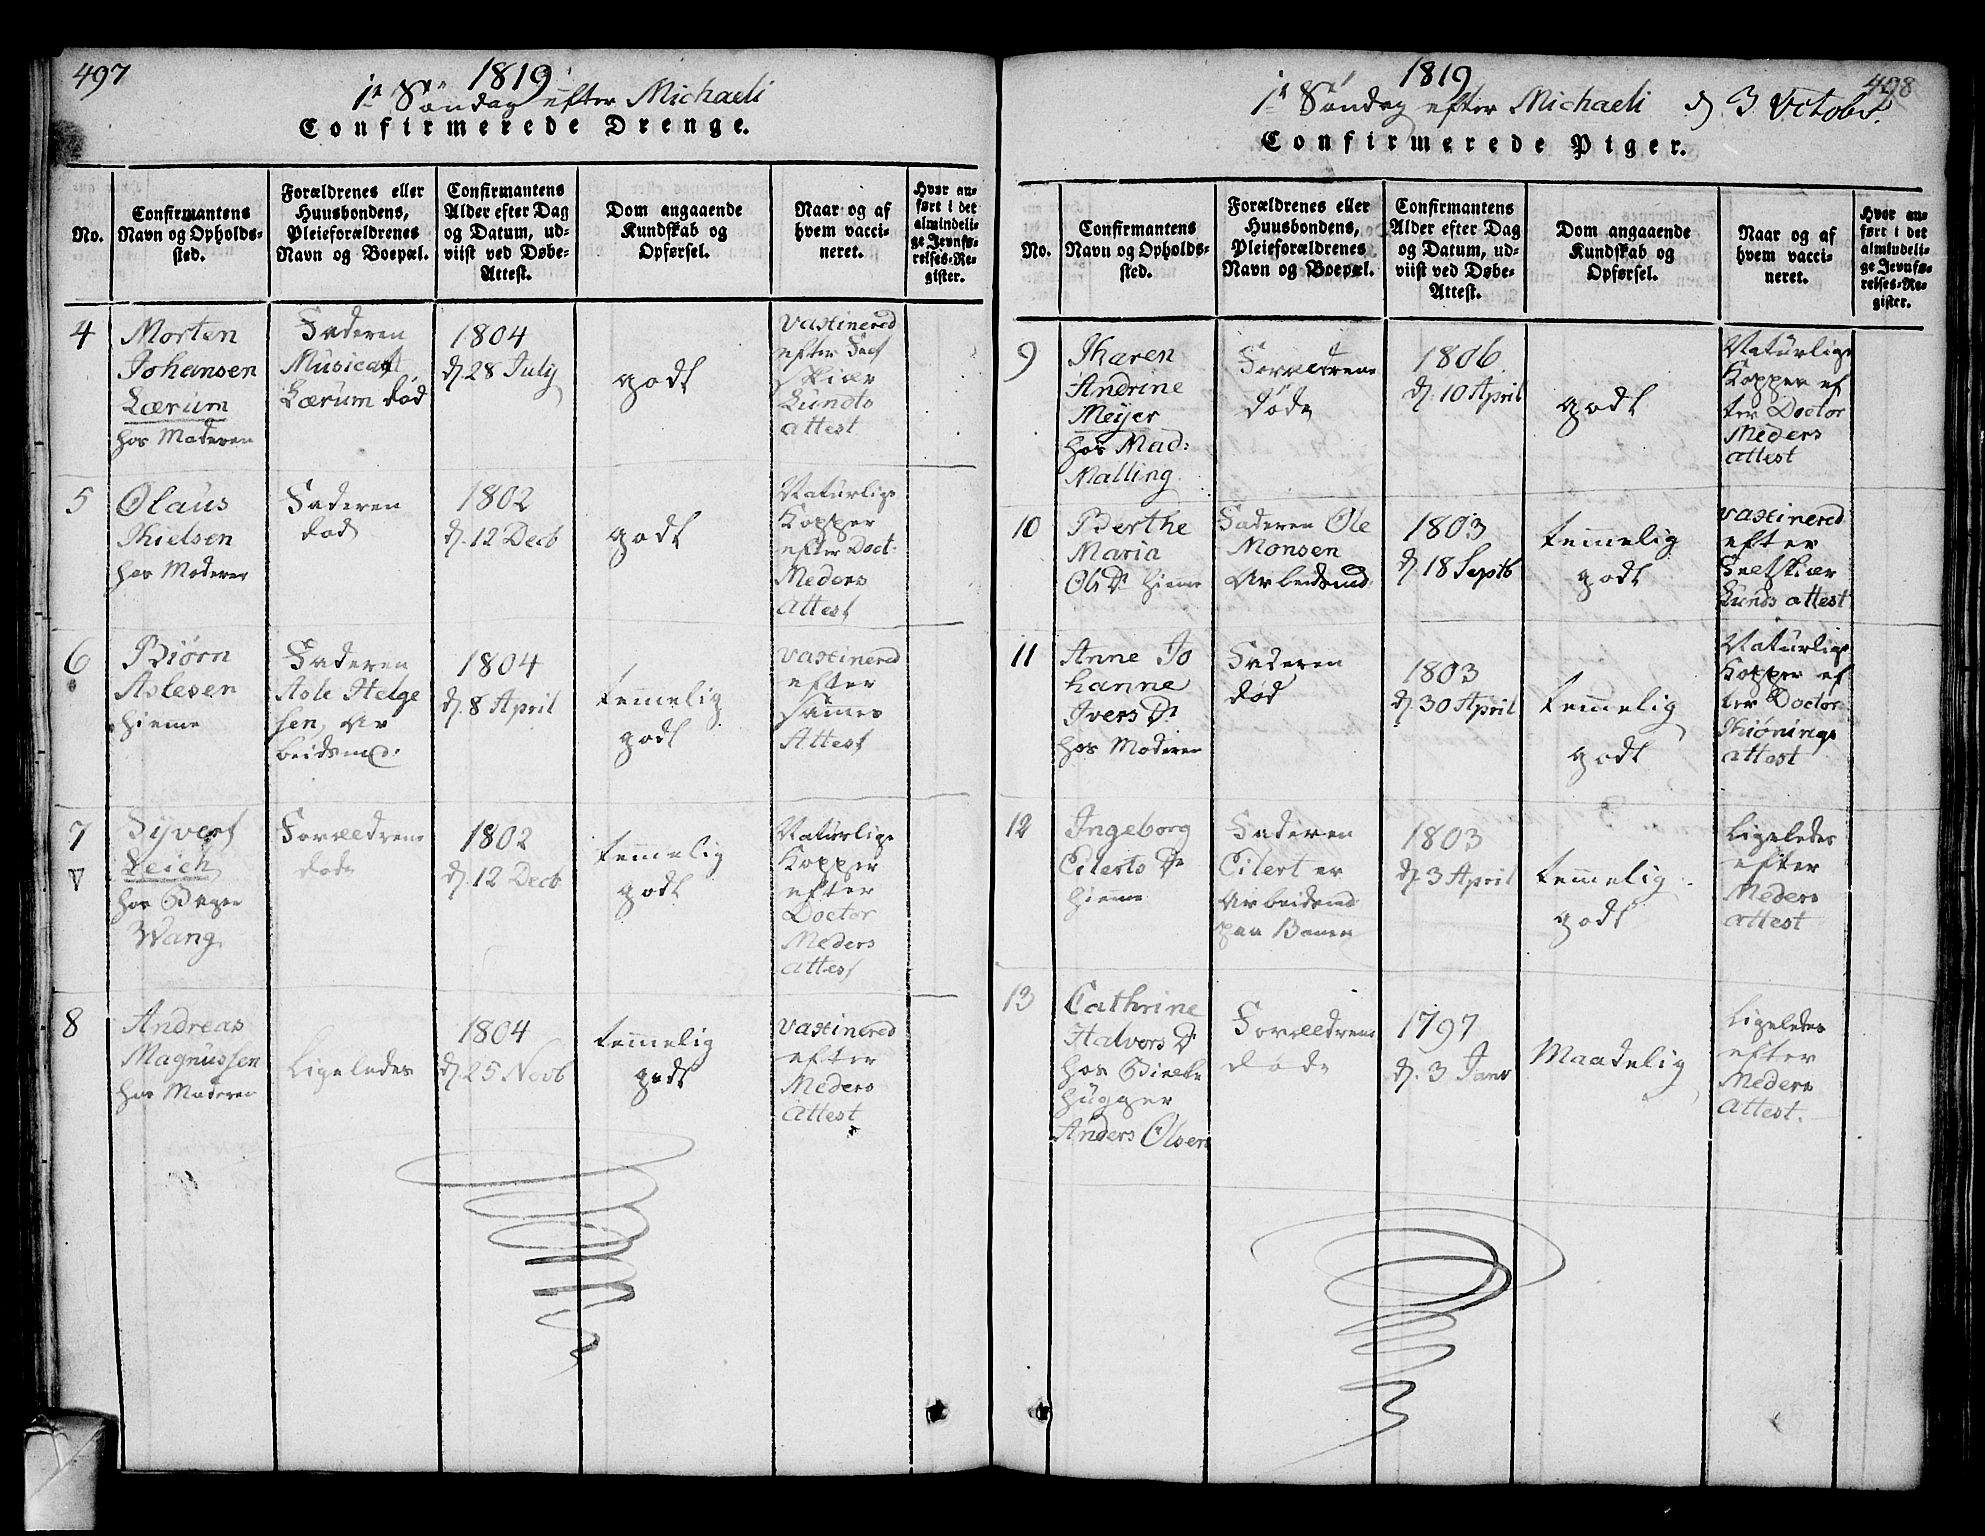 497
1819
1e Søndag efter Michaeli
Confirmerede Drenge.
No.
Confirmantens
Navn og Opholds-
sted.
Forældrenes eller
Huusbondens,
Pleieforældrenes
Navn og Boepæl.
Confirmantens
Alder efter Dag
og Datum, ud-
viist ved Døbe-
Attest.
Dom angaaende
Kundskab og
Opførsel.
Naar og af
hvem vacci-
neret.
Hvor an-
ført i det
almindeli-
ge Jevnfø-
relses-Re-
gister.
4
Morten
Johansen
Lærum
hos Moderen
Faderen
Lærum død
1804
d. 28 July
godt
vaxinered
efter
Lunds
attest
5
Olaus
Nielsen
hos Moderen
Faderen
død
1802
d. 12 Decb
godt
Naturlige
Kopper
efter Doct.
Meders
Attest
6
Biørn
Aslesen
hieme
Faderen
Asle Helge
sen, Ar
beidsmd.
1804
d. 8 April
temmelig
godt
vaxinered
efter
sames
Attest
7
Syvert
Leich
hos Bager
Wang
Forældrene
døde
1802
d. 12 Decb
temmelig
godt
Naturlige
Kopper
efter
Doctor
Meders
attest
8
Andreas
Magnussen
hos Moderen
Ligeledes
1804
d. 25 Novb
temmelig
godt
vaxinered
efter
Meders
Attest
498
1819
1e Søndag efter Michaeli d. 3 Octobr.
Confirmerede Piger.
No.
Confirmantens
Navn og Opholds-
sted.
Forældrenes eller
Huusbondens,
Pleieforældrenes
Navn og Boepæl.
Confirmantens
Alder efter Dag
og Datum, ud-
viist ved Døbe-
Attest.
Dom angaaende
Kundskab og
Opførsel.
Naar og af
hvem vacci-
neret.
Hvor an-
ført i det
almindeli-
ge Jevnfø-
relses-Re-
gister.
9
Karen
Andrine
Meyer
hos Mad:
Malling
Forældrene
døde
1806
d. 10 April
godt
Naturlige
Kopper ef
ter Doctor
Meders
attest
10
Berthe
Maria
Ols Dr hieme
Faderen Ole
Monsen
Arbeidsmd.
1803
d. 18 Septb
temmelig
godt
vaxinered
efter
Feltskiær
Lunds attest
11
Anne Jo
hanne
Ivers Dr
hos Moderen
Faderen
død
1803
d. 30 April
temmelig
godt
Naturlige
Kopper ef
ter Doctor
Kiønings
attest
12
Ingeborg
Eilerts Dr
hieme
Faderen
Eilert er
Arbeidsmd
paa Banen
1803
d. 3 April
temmelig
godt
Ligeledes
efter
Meders
attest
13
Cathrine
Halvors Dr
hos Bielke
hugger
Anders Olsen
Forældrene
døde
1797
d. 3 Janv
Maadelig
Ligeledes
efter
Meders
attest.